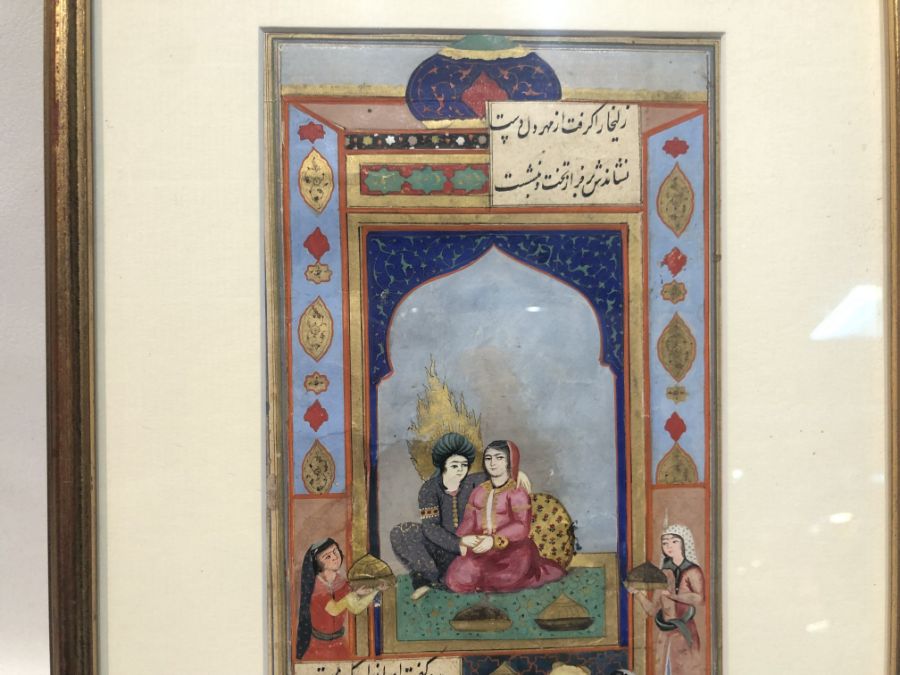 زلیخا را گرفت از مهر دل دست
نشاندش بر فراز تخت و بنشست